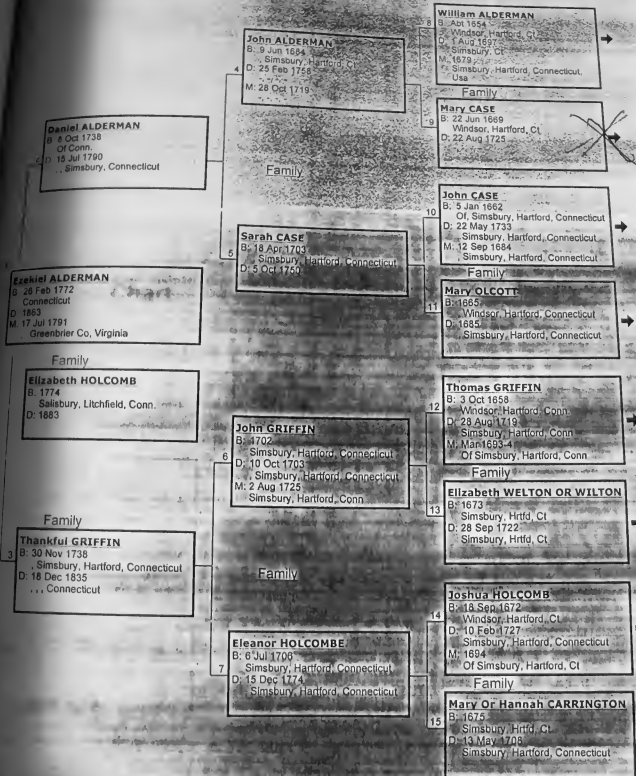 Daniel ALDERMAN
B: 8 Oct 1738
Of Conn.
D: 15 Jul 1790
, , Simsbury, Connecticut
Ezekiel ALDERMAN
B: 28 Feb 1772
Connecticut
D: 1863
M: 17 Jul 1791
Greenbrier Co, Virginia
Family
Elizabeth HOLCOMB
B: 1774
Salisbury, Litchfield, Conn.
D: 1883
Family
3
Thankful GRIFFIN
B: 30 Nov 1738
, Simsbury, Hartford, Connecticut
D: 18 Dec 1835
, , , Connecticut
4
John ALDERMAN
B: 9 Jun 1684
, Simsbury, Hartford, Ct
D: 25 Feb 1758
M: 28 Oct 1719
Family
5
Sarah CASE
B: 18 Apr 1703
Simsbury, Hartford, Connecticut
D: 5 Oct 1750
6
John GRIFFIN
B: 1702
Simsbury, Hartford, Connecticut
D: 10 Oct 1703
, Simsbury, Hartford, Connecticut
M: 2 Aug 1725
Simsbury, Hartford, Conn
Family
7
Eleanor HOLCOMBE
B: 6 Jul 1706
Simsbury, Hartford, Connecticut
D: 15 Dec 1774
Simsbury, Hartford, Connecticut
8
William ALDERMAN
B: Abt 1654
, Windsor, Hartford, Ct
D: 1 Aug 1697
Simsbury, Ct
M: 1679
Simsbury, Hartford, Connecticut,
Usa
Family
9
Mary CASE
B: 22 Jun 1669
Windsor, Hartford, Ct
D: 22 Aug 1725
10
John CASE
B: 5 Jan 1662
Of, Simsbury, Hartford, Connecticut
D: 22 May 1733
, Simsbury, Hartford, Connecticut
M: 12 Sep 1684
, Simsbury, Hartford, Connecticut
Family
11
Mary OLCOTT
B: 1665
Windsor, Hartford, Connecticut
D: 1685
, Simsbury, Hartford, Connecticut
12
Thomas GRIFFIN
B: 3 Oct 1658
Windsor, Hartford, Conn
D: 28 Aug 1719
Simsbury, Hartford, Conn
M: Mar 1693-4
Of Simsbury, Hartford, Conn
Family
13
Elizabeth WELTON OR WILTON
B: 1673
Simsbury, Hrtfd, Ct
D: 28 Sep 1722
Simsbury, Hrtfd, Ct
14
Joshua HOLCOMB
B: 18 Sep 1672
Windsor, Hartford, Ct
D: 10 Feb 1727
Simsbury, Hartford, Connecticut
M: 1694
Of Simsbury, Hartford, Ct
Family
15
Mary Or Hannah CARRINGTON
B: 1675
Simsbury, Hrtfd, Ct
D: 13 May 1708
Simsbury, Hartford, Connecticut